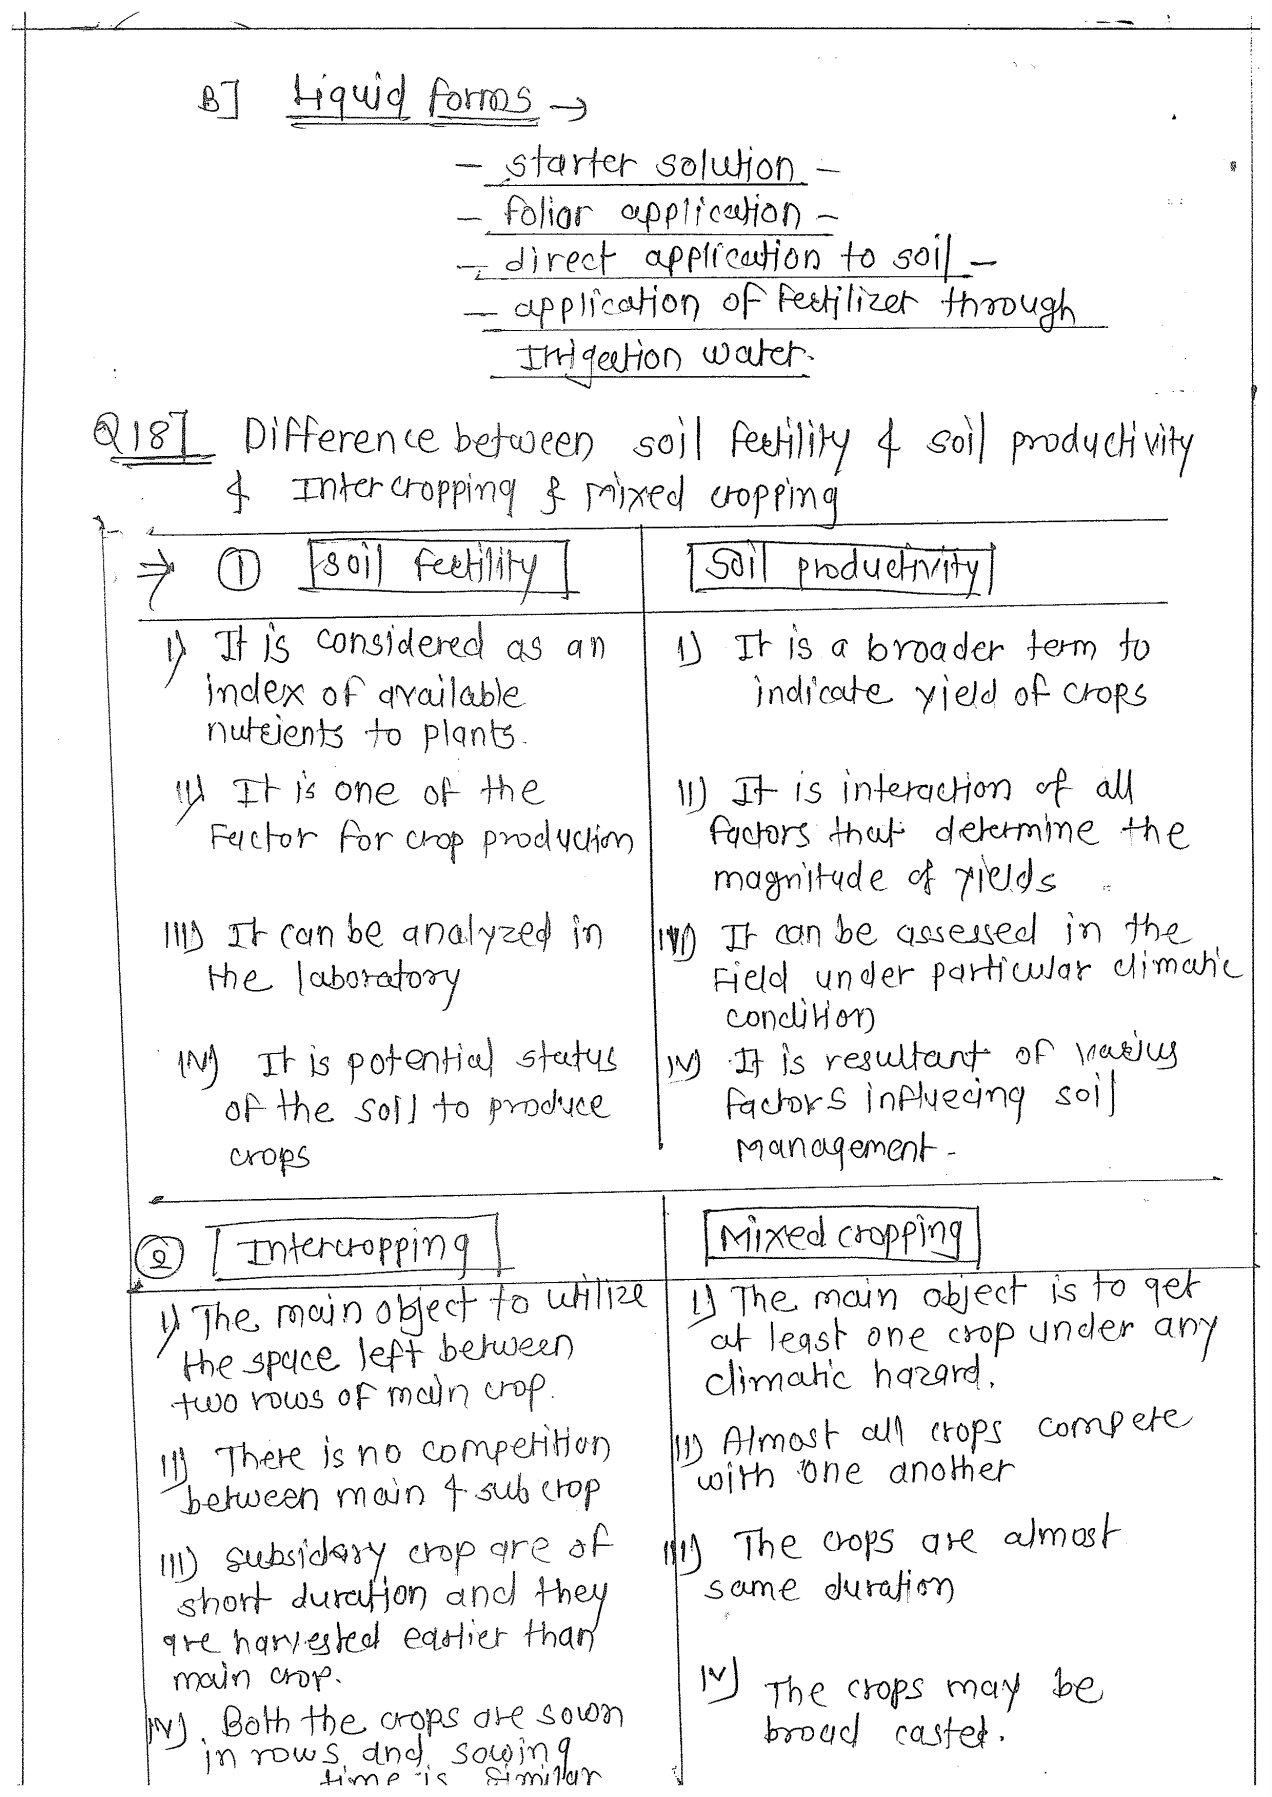 B] Liquid forms →
- starter solution -
- foliar application -
- direct application to soil -
- application of Fertilizer through
Irrigation water.
Q18] Difference between soil fertility & soil productivity
& Intercropping & Mixed cropping
⇒ ① soil fertility
i) It is considered as an
index of available
nutrients to plants.
ii) It is one of the
Factor for crop production
iii) It can be analyzed in
the laboratory
iv) It is potential status
of the soil to produce
crops
Soil productivity
i) It is a broader term to
indicate yield of crops
ii) It is interaction of all
factors that determine the
magnitude of yields
iii) It can be assessed in the
Field under particular climatic
condition
iv) It is resultant of various
factors influecing soil
management.
② Intercropping
i) The main object to utilize
the space left between
two rows of main crop.
ii) There is no competition
between main & sub crop
iii) subsidary crop are of
short duration and they
are harvested earlier than
main crop.
iv) Both the crops are sown
in rows and sowing
time is similar
Mixed cropping
i) The main object is to get
at least one crop under any
climatic hazard.
ii) Almost all crops compete
with one another
iii) The crops are almost
same duration
iv) The crops may be
broad casted.